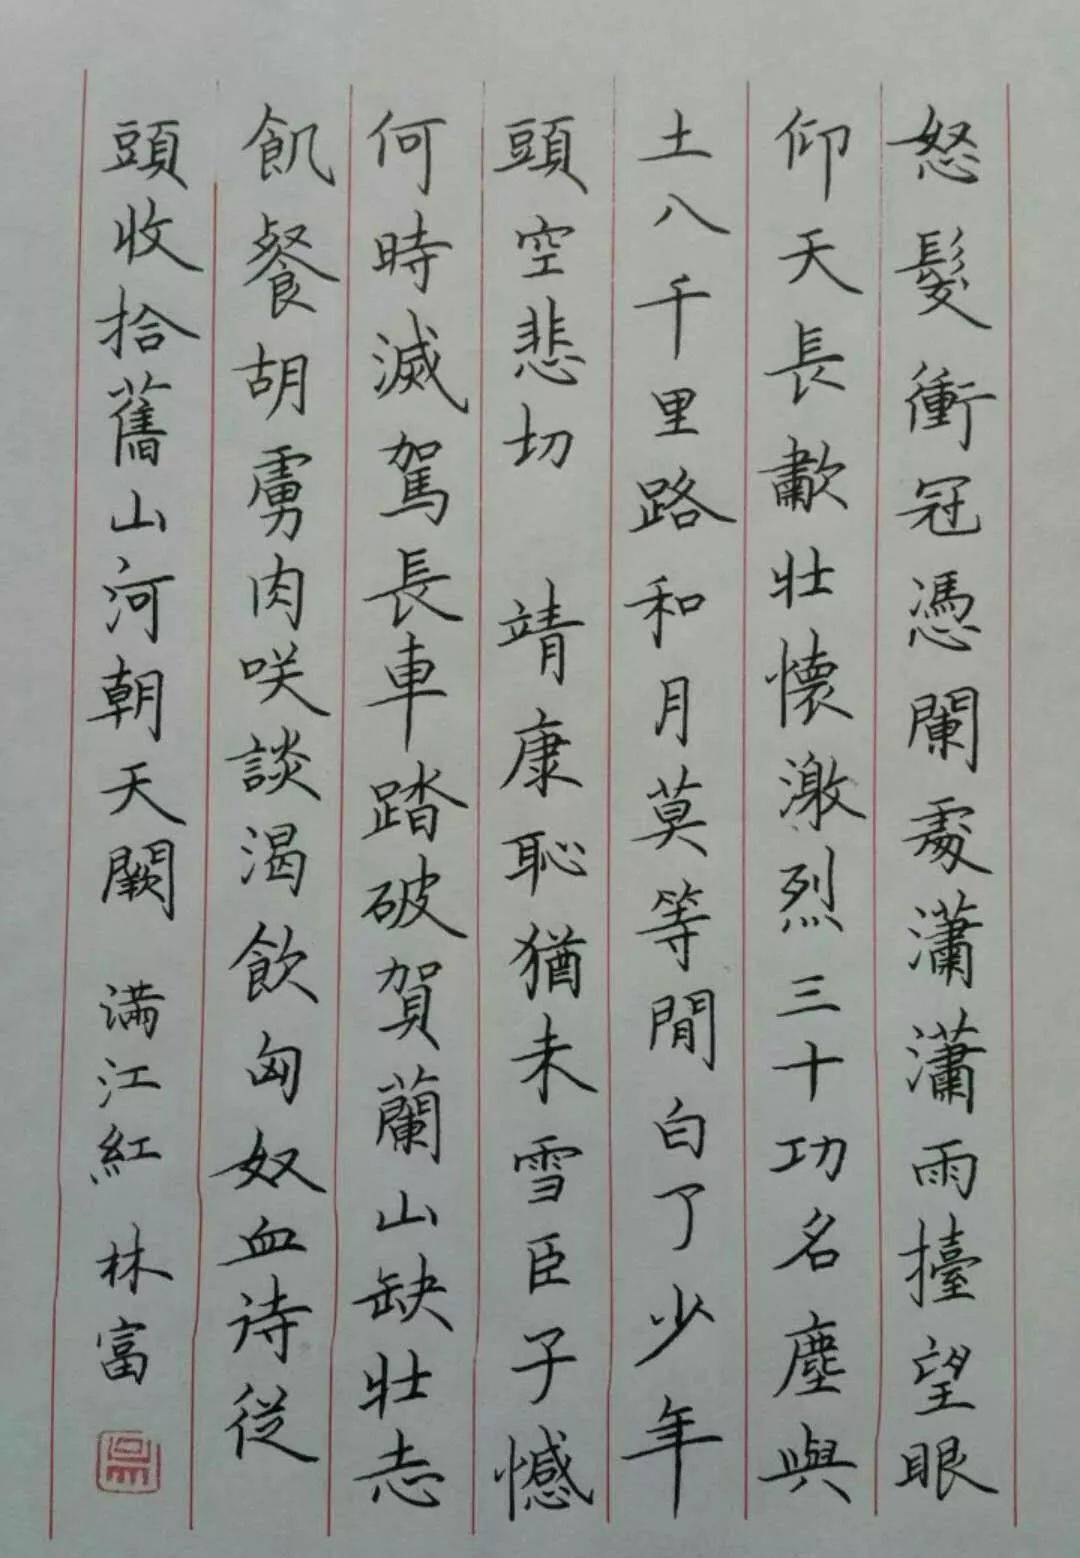 怒髮衝冠憑闌處瀟瀟雨擡望眼
仰天長歗壯懷激烈三十功名塵與
土八千里路和月莫等閒白了少年
頭空悲切　靖康恥猶未雪臣子憾
何時滅駕長車踏破賀蘭山缺壯志
飢餐胡虜肉咲談渴飲匈奴血待從
頭收拾舊山河朝天闕　满江紅　林富